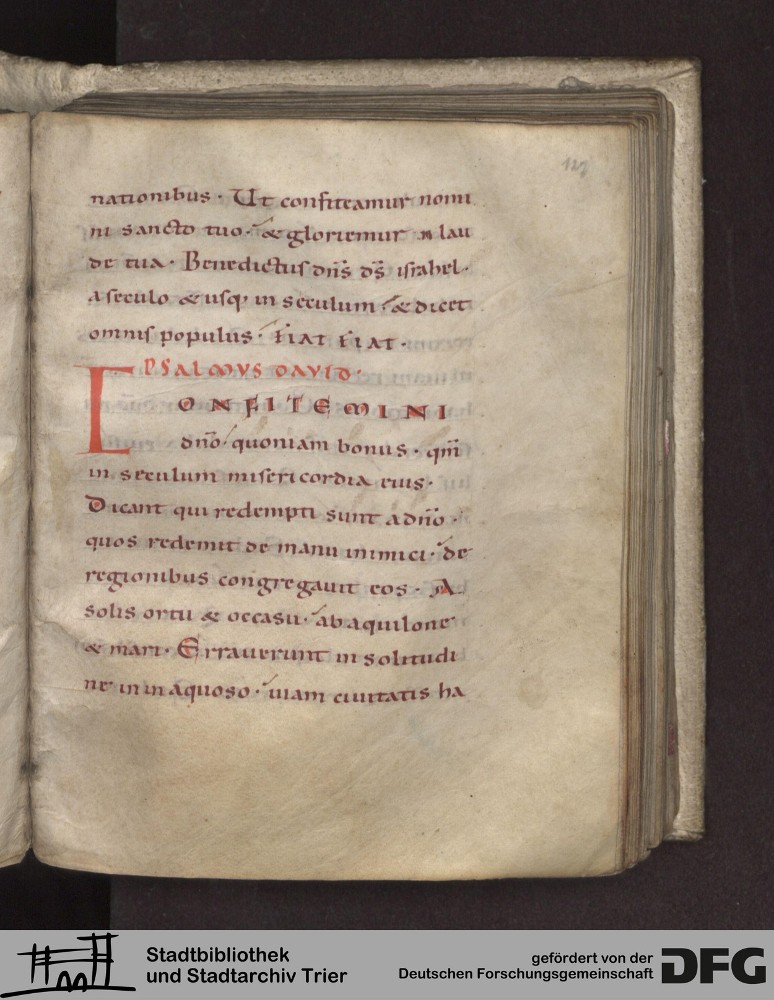 127
nationibus · Ut confiteamur nomi
ni sancto tuo · & gloriemur in lau
de tua · Benedictus dn̄s ds̄ israhel ·
a seculo & usq; in seculum · & dicet
omnis populus · fiat fiat ·
PSALMVS DAVID ·
CONFITEMINI
dn̄o quoniam bonus · qm̄
in seculum misericordia eius ·
Dicant qui redempti sunt a dn̄o ·
quos redemit de manu inimici · de
regionibus congregavit eos · A
solis ortu & occasu · ab aquilone
& mari · Erraverunt in solitudi
ne in inaquoso · viam civitatis ha
Stadtbibliothek
und Stadtarchiv Trier
gefördert von der
Deutschen Forschungsgemeinschaft
DFG